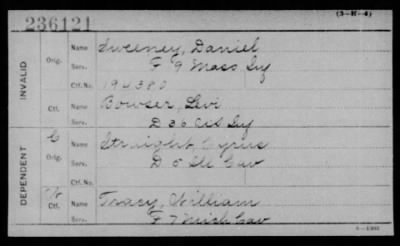 (3-H-4)
236121
INVALID
Orig.
Name Sweeney, Daniel
Serv. F 9 Mass Inf
Ctf. No. 194380
Ctf.
Name Bowser, Levi
Serv. D 36 Inf
DEPENDENT
C
Orig.
Name Straight, Cyrus
Serv. D 5 Ill Cav
Ctf. No.
Ctf.
Name Tracy, William
Serv. F 7 Mich Cav